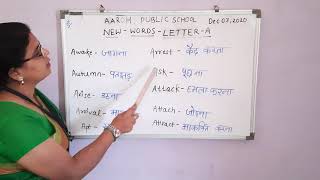 AAROH PUBLIC SCHOOL Dec 03, 2020
NEW-WORDS-LETTER-A
Awake - जागना
Autumn - पतझड़
Arise - उठना
Arrival -
Apt -
Arrest - कैद करना
Ask - पूछना
Attack - हमला करना
Attach - जोड़ना
Attract - आकर्षित करना